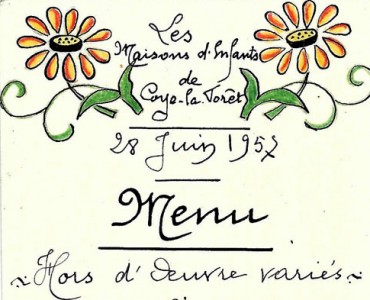 Les
Maisons d'Enfants
de
Coye-la-Forêt
28 Juin 1957
Menu
Hors d'œuvre variés